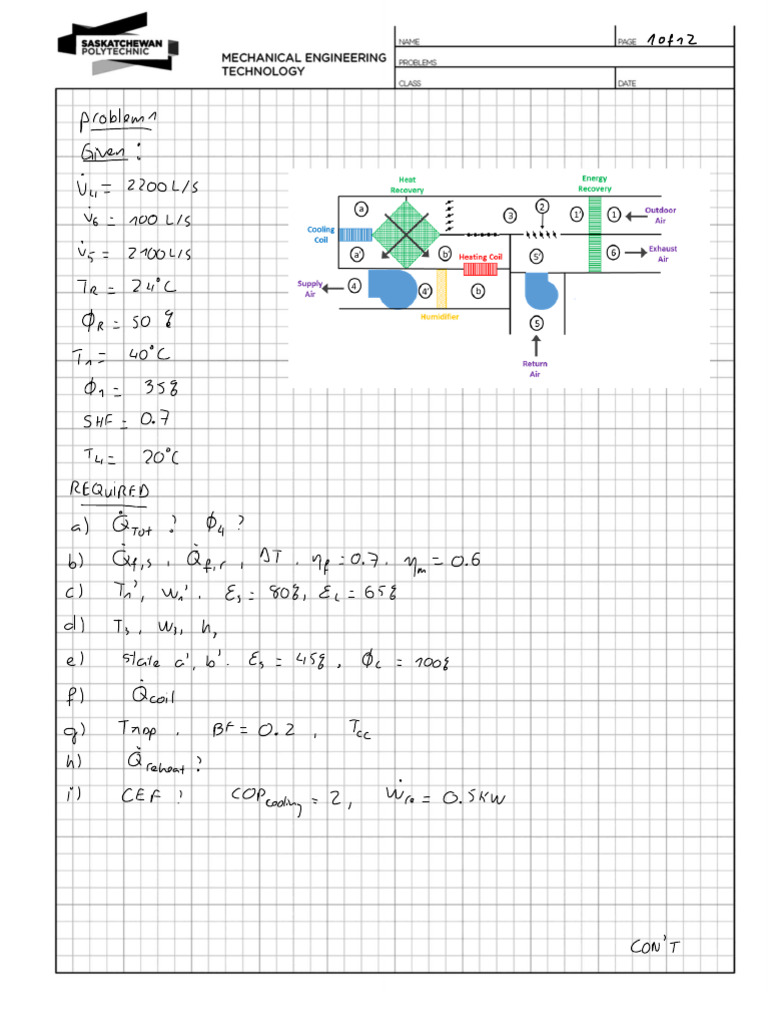 SASKATCHEWAN
POLYTECHNIC
MECHANICAL ENGINEERING
TECHNOLOGY
NAME
PAGE 1 of 12
PROBLEMS
CLASS
DATE
Problem 1
Given:
V̇4 = 2200 L/S
V̇6 = 100 L/S
V̇5 = 2100 L/S
TR = 24°C
ΦR = 50 %
T1 = 40°C
Φ1 = 35%
SHF = 0.7
T4 = 20°C
Heat
Recovery
Energy
Recovery
a
2
3
1'
1
Outdoor
Air
Cooling
Coil
a'
b'
Heating Coil
5'
6
Exhaust
Air
Supply
Air
4
4'
b
Humidifier
5
Return
Air
REQUIRED
a) Q̇Tot ? Φ4 ?
b) Q̇f,s , Q̇f,r , ΔT . ηf = 0.7 . ηm = 0.6
c) T1', W1' . Es = 80%, EL = 65%
d) T3, W3, h3
e) state a', b'. Es = 45% , ΦC = 100%
f) Q̇coil
g) TADP . BF = 0.2 , TCC
h) Q̇reheat ?
i) CEF ? COPcooling = 2, Ẇre = 0.5KW
CON'T